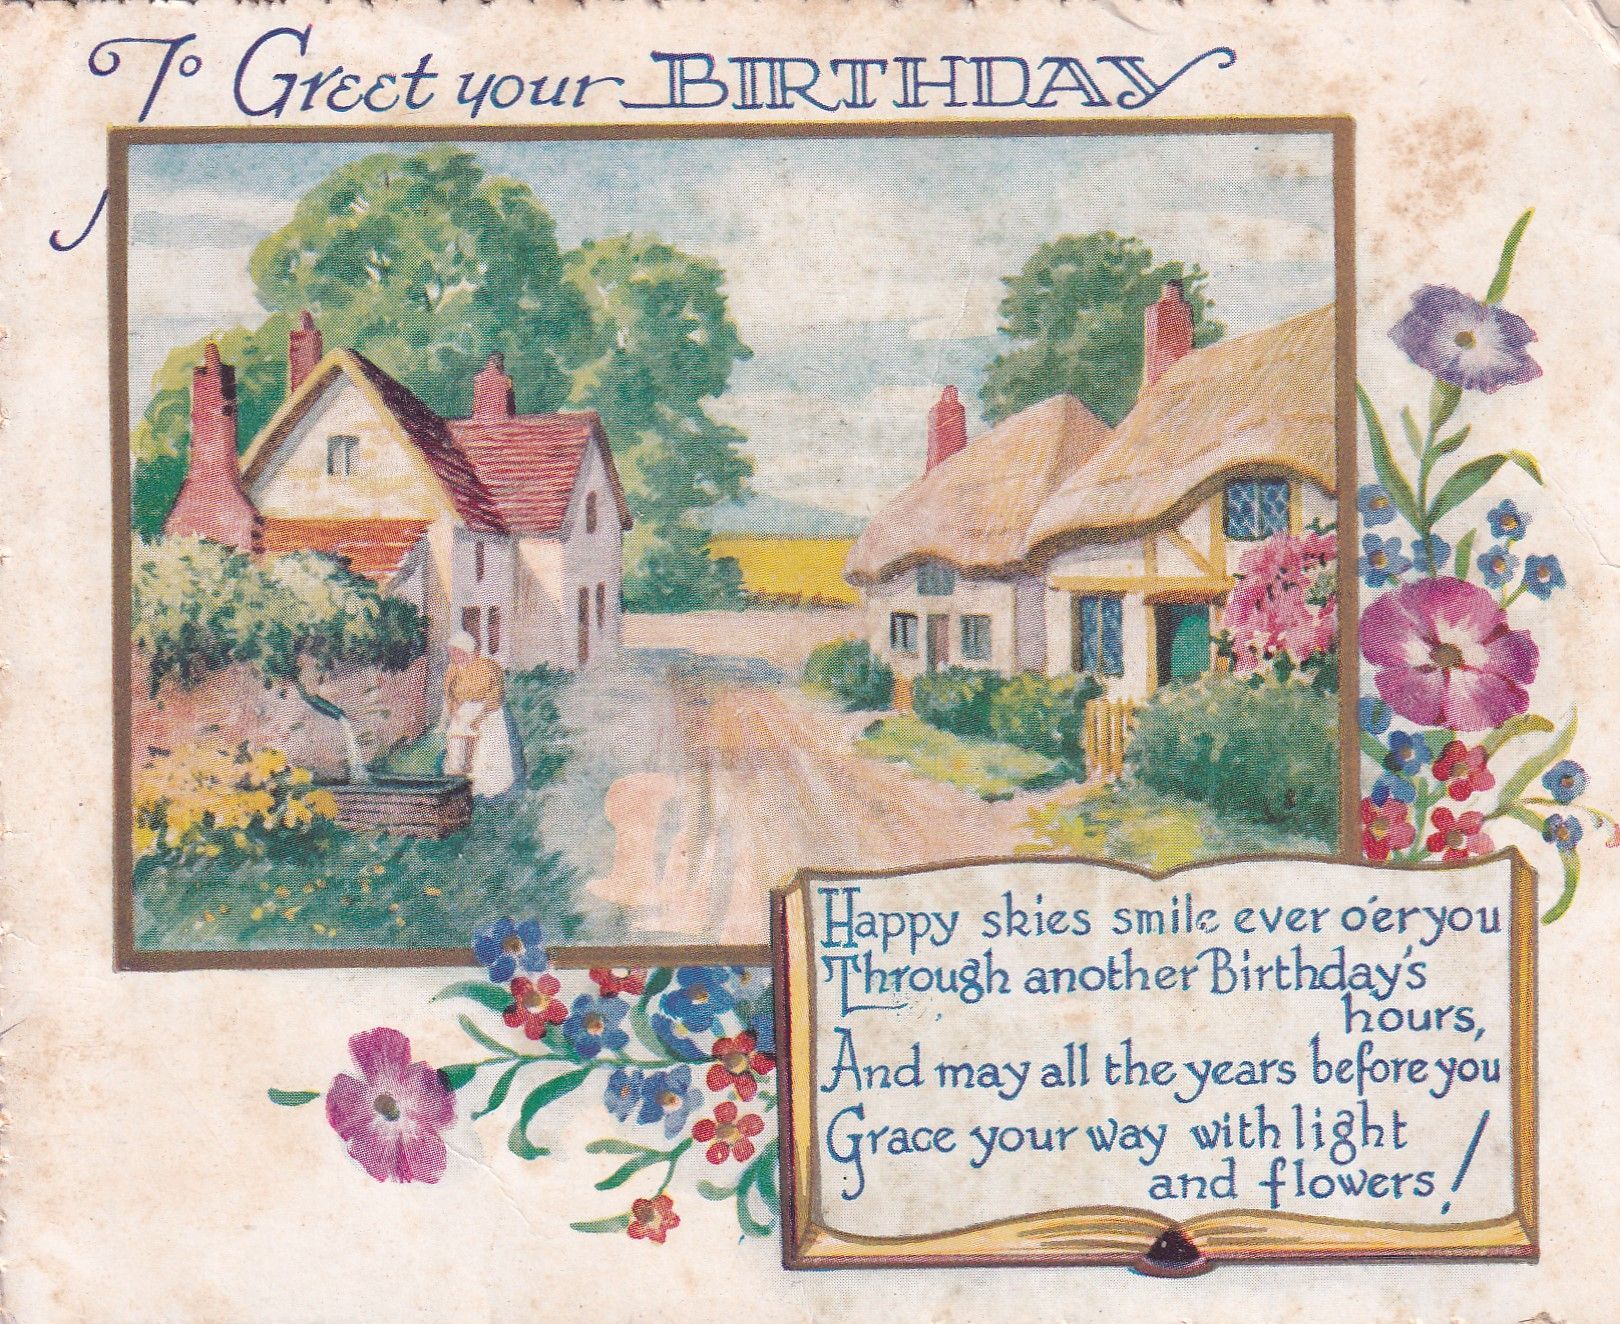 To Greet your BIRTHDAY
Happy skies smile ever o'er you
Through another Birthday's
hours,
And may all the years before you
Grace your way with light
and flowers!